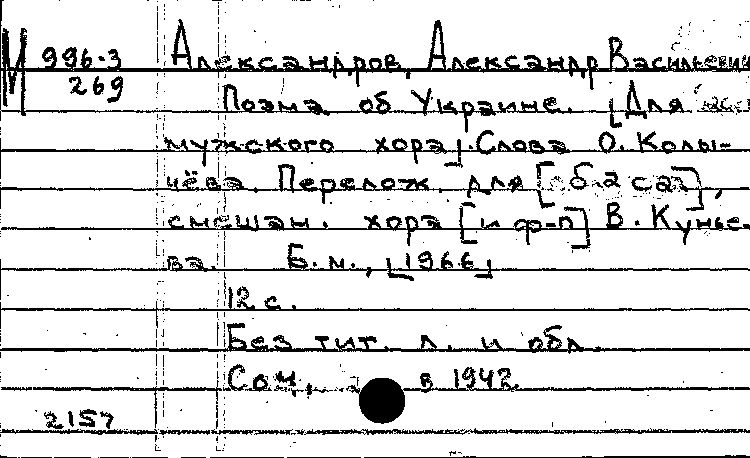 М 996-3
269
Александров, Александр Васильевич
Поэма об Украине. [Для баса
мужского хора]. Слова О. Колы-
чёва. Перелож. для [баса],
смешан. хора [и ф-п] В. Кунье-
ва. Б.м., [1966]
12 с.
Без тит. л. и обл.
Соч. в 1942
2157